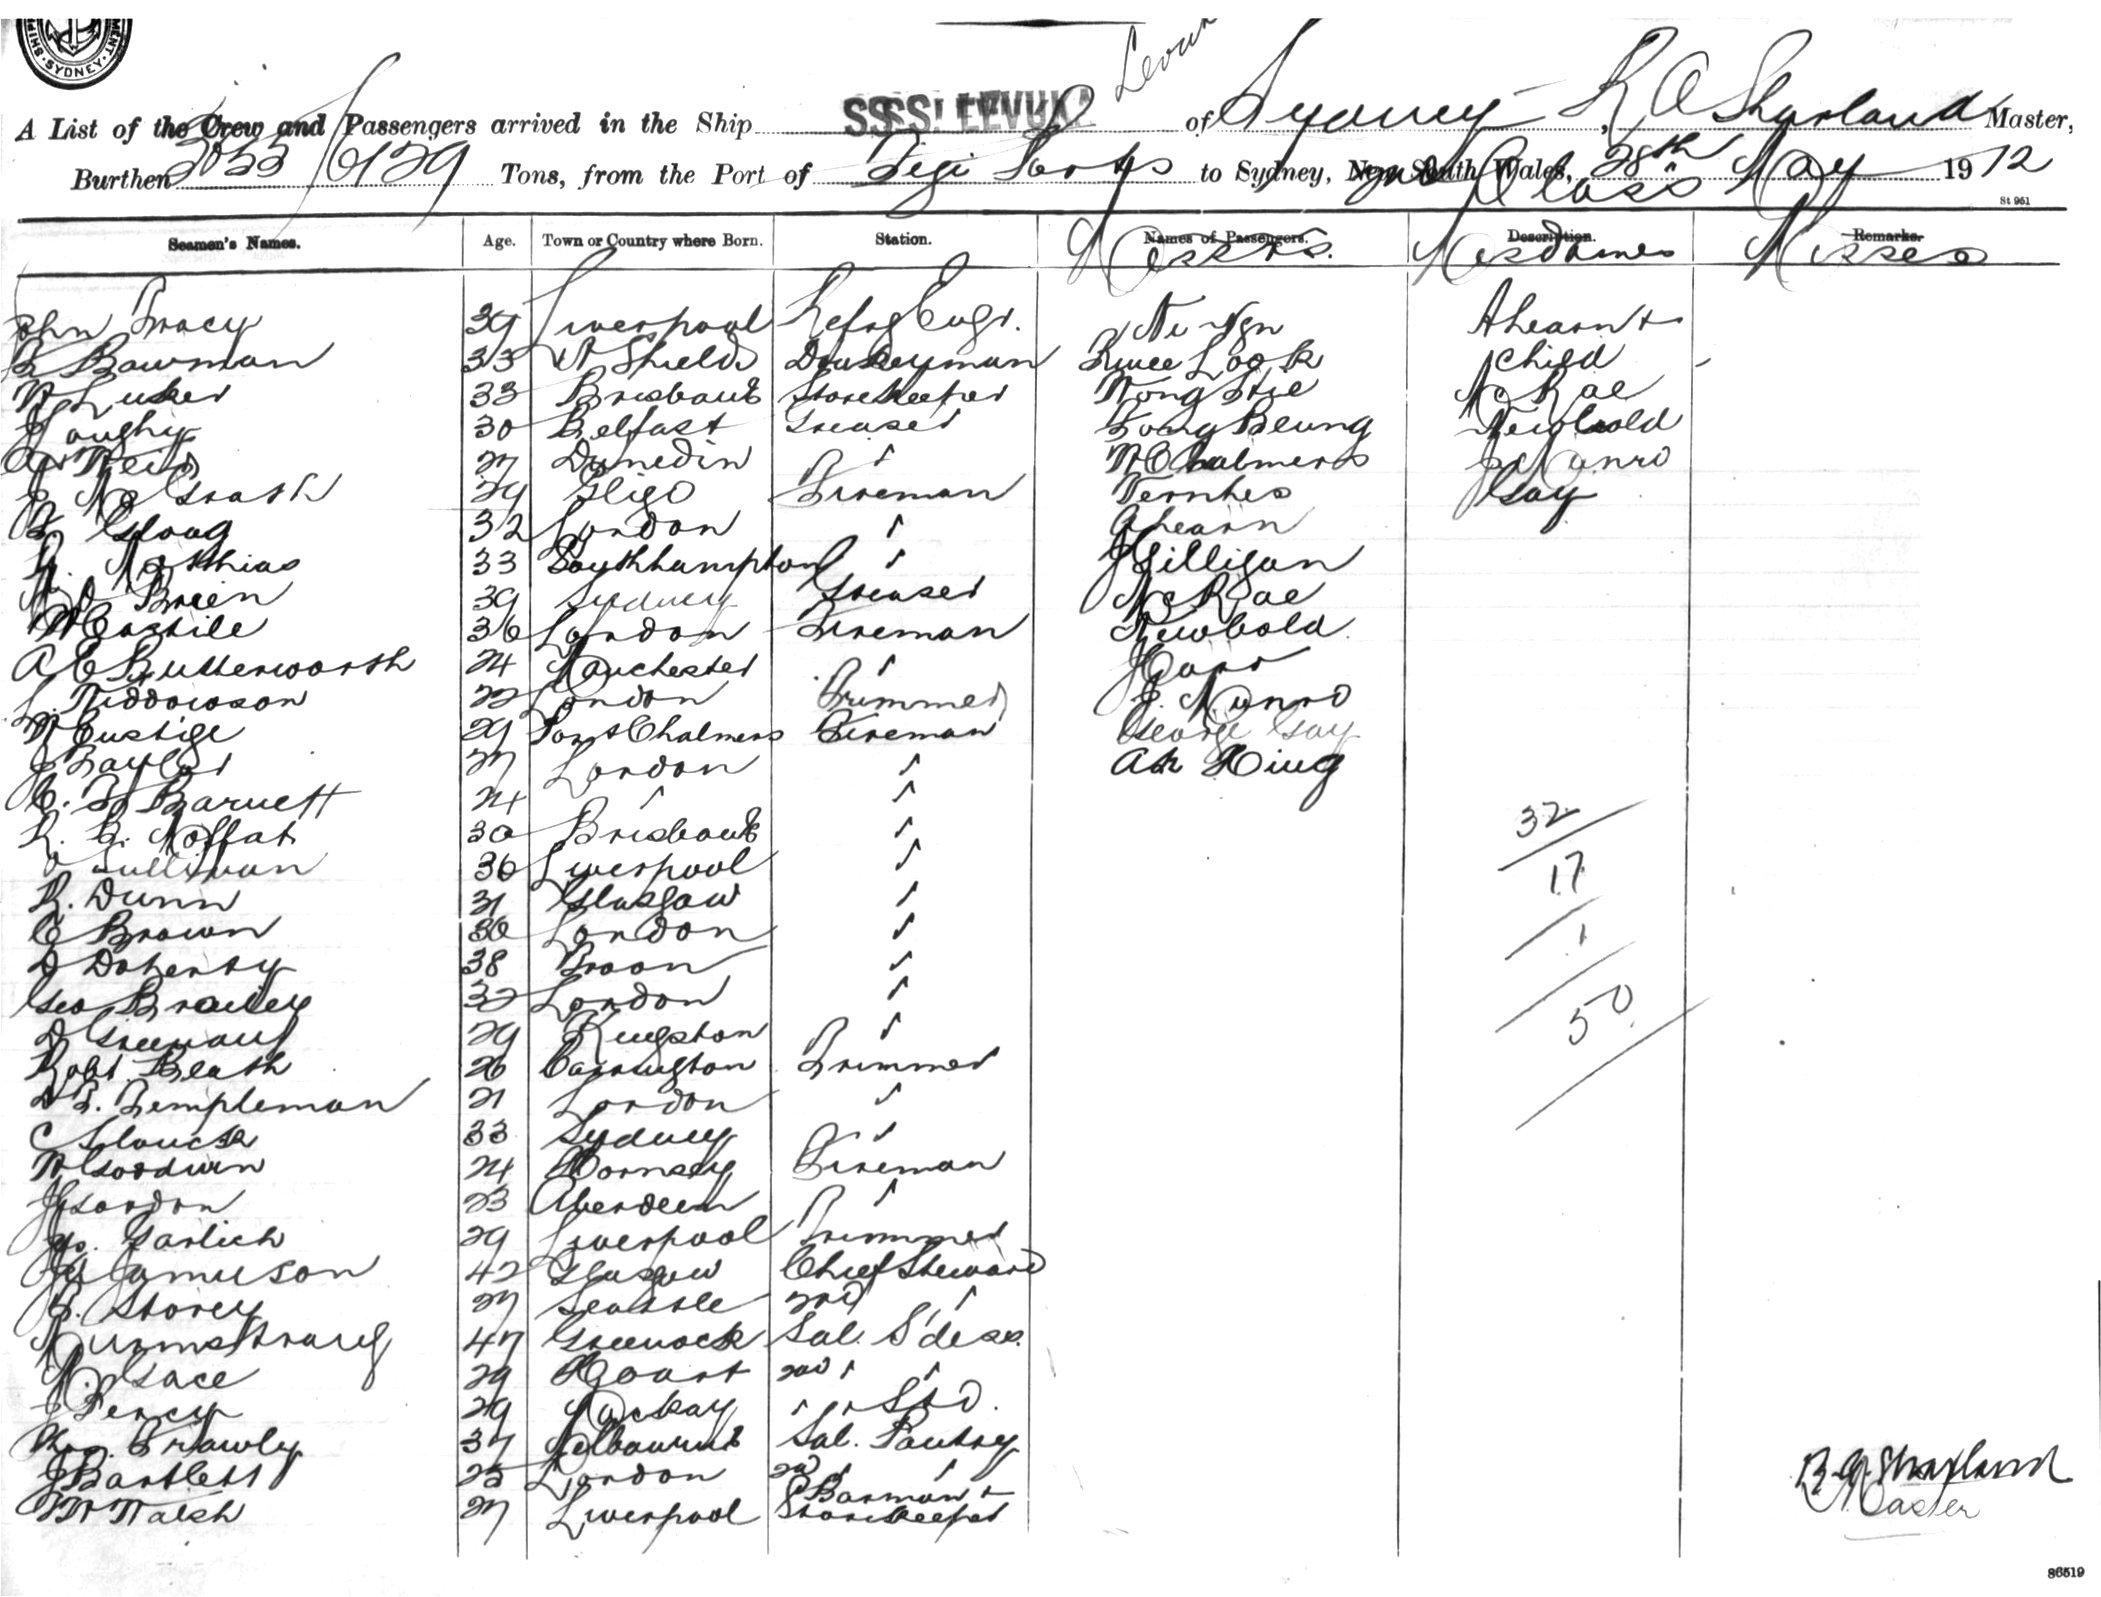 SYDNEY
Levuk
A List of the Crew and Passengers arrived in the Ship SS. LEVUKA of Sydney, R A Sharland Master,
Burthen Tons, from the Port of Fiji Ports to Sydney, New South Wales, 28th May 1912
2nd Class
St 951
Seamen's Names. Age. Town or Country where Born. Station. Names of Passengers. Description. Remarks.
Messrs. Mesdames Misses
John Tracy 39 Liverpool Refrg Engr. Ahearn +
B Bowman 33 N Shields Donkeyman Kwee Look child
W Luker 33 Brisbane Storekeeper Wong Hie McRae
30 Belfast Greaser Fong Beung Newbold
Reid 27 Dunedin " W Chalmers J Munro
J McGrath 29 Sligo Fireman Gay
32 London " Ahearn
Matthias 33 Southhampton " J Gilligan
Brien 39 Sydney Greaser McRae
W Castile 36 London Fireman Newbold
A E Butterworth 24 Manchester " J Carr
L. Widdowson 22 London Trimmer J. Munro
W Eustige 29 Port Chalmers Fireman George Gay
J Taylor 27 London " Ah Hing
C. Barnett 24 " "
R. G. Moffat 30 Brisbane "
Sullivan 36 Liverpool "
R. Dunn 31 Glasgow "
C Brown 30 London "
J Doherty 38 "
Geo Brailey 32 London "
29 Kingston "
Robt Heath 26 Carrington Trimmer
Templeman 21 London "
C 33 Sydney "
W Goodwin 24 Hornsey Fireman
J Gordon 23 Aberdeen "
Jas. Garlick 29 Liverpool Trimmer
Jamieson 42 Glasgow Chief Steward
Storey 27 Seattle 2nd "
Armstrong 47 Greenock Sal. S'dess.
29 2nd " "
J Percy 29 Mackay " " Std.
Thos. Frawley 37 Melbourne Sal. Pantry
J Bartlett 25 London 2nd " "
W Walsh 27 Liverpool Barman + Storekeeper
32
17
1
50
R. A. Sharland
Master
86519